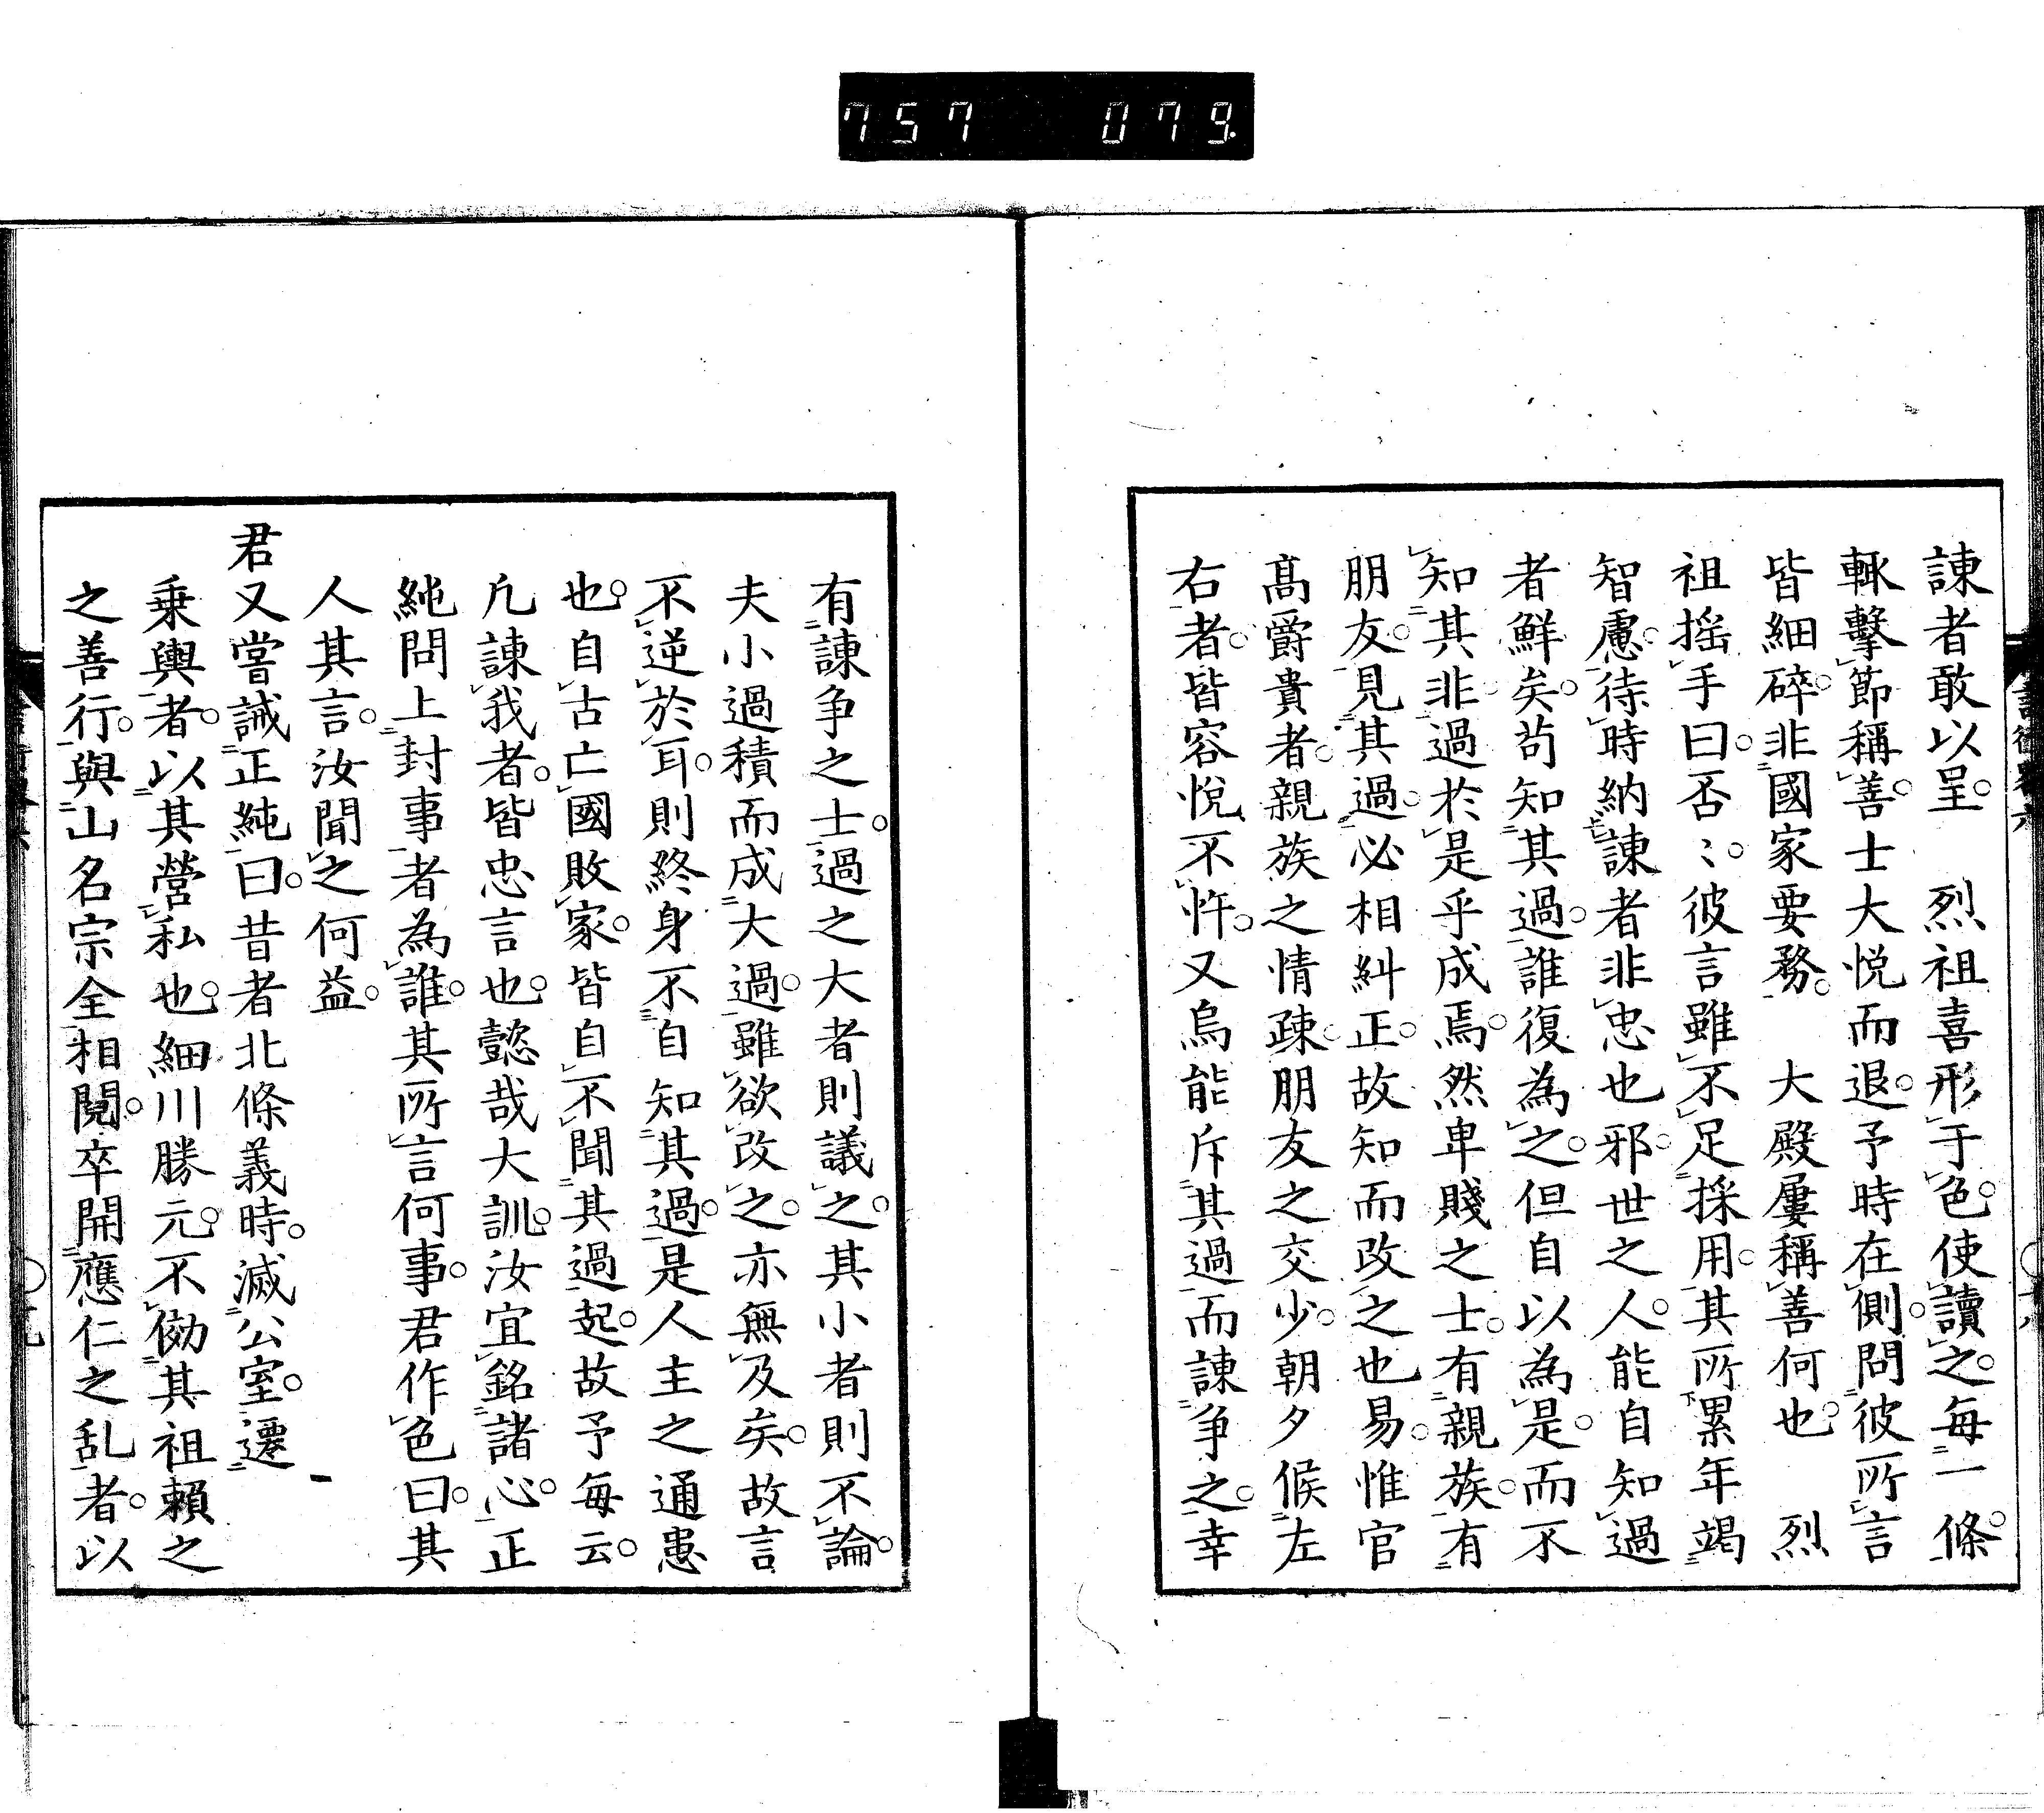 757 079
諫者敢以呈。　烈祖喜形于色。使讀之。每一條。
輙擊節稱善。士大悦而退。予時在側。問彼所言
皆細碎。非國家要務。　大殿屢稱善何也。　烈
祖揺手曰。否〻。彼言雖不足採用。其所累年竭
智慮。待時納諫者非忠也邪。世之人。能自知過
者鮮矣。苟知其過。誰復為之。但自以為是。而不
知其非過於是乎成焉。然卑賤之士。有親族。有
朋友。見其過。必相糾正。故知而改之也易。惟官
髙爵貴者。親族之情疎。朋友之交少。朝夕候左
右者。皆容悦不忤。又烏能斥其過而諫争之。幸
有諫争之士。過之大者則議之。其小者則不論。
夫小過積而成大過。雖欲改之。亦無及矣。故言
不逆於耳。則終身不自知其過。是人主之通患
也。自古亡國敗家。皆自不聞其過起。故予每云。
凢諫我者。皆忠言也。懿哉大訓。汝宜銘諸心。正
純問上封事者為誰。其所言何事。君作色曰。其
人其言。汝聞之何益。
君又嘗誡正純曰。昔者北條義時。滅公室。遷
乗輿者。以其營私也。細川勝元。不傚其祖頼之
之善行。與山名宗全相䦧。卒開應仁之乱者。以